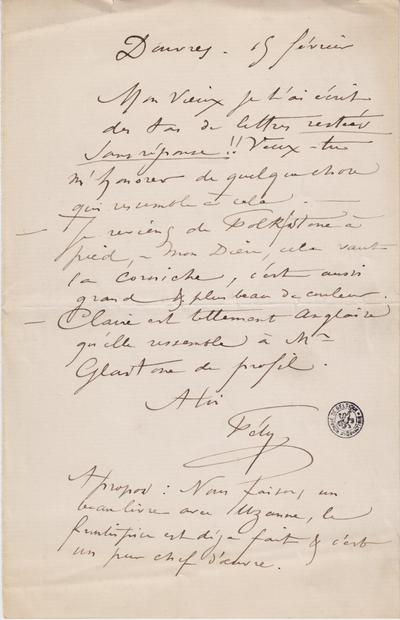 Douvres. 15 février
Mon vieux je t'ai écrit
des tas de lettres restées
sans réponse!! Veux-tu
m'honorer de quelque chose
qui ressemble à cela. —
— Je reviens de Folkestone à
pied, – mon Dieu, cela vaut
la corniche, c'est aussi
grand & plus beau de couleur.
— Claire est tellement Anglaise
qu'elle ressemble à Mr
Glastone de profil.
A toi
Fély
A propos : Nous faisons un
beau livre avec Uzanne, le
frontispice est déja fait & c'est
un pur chef d'œuvre.